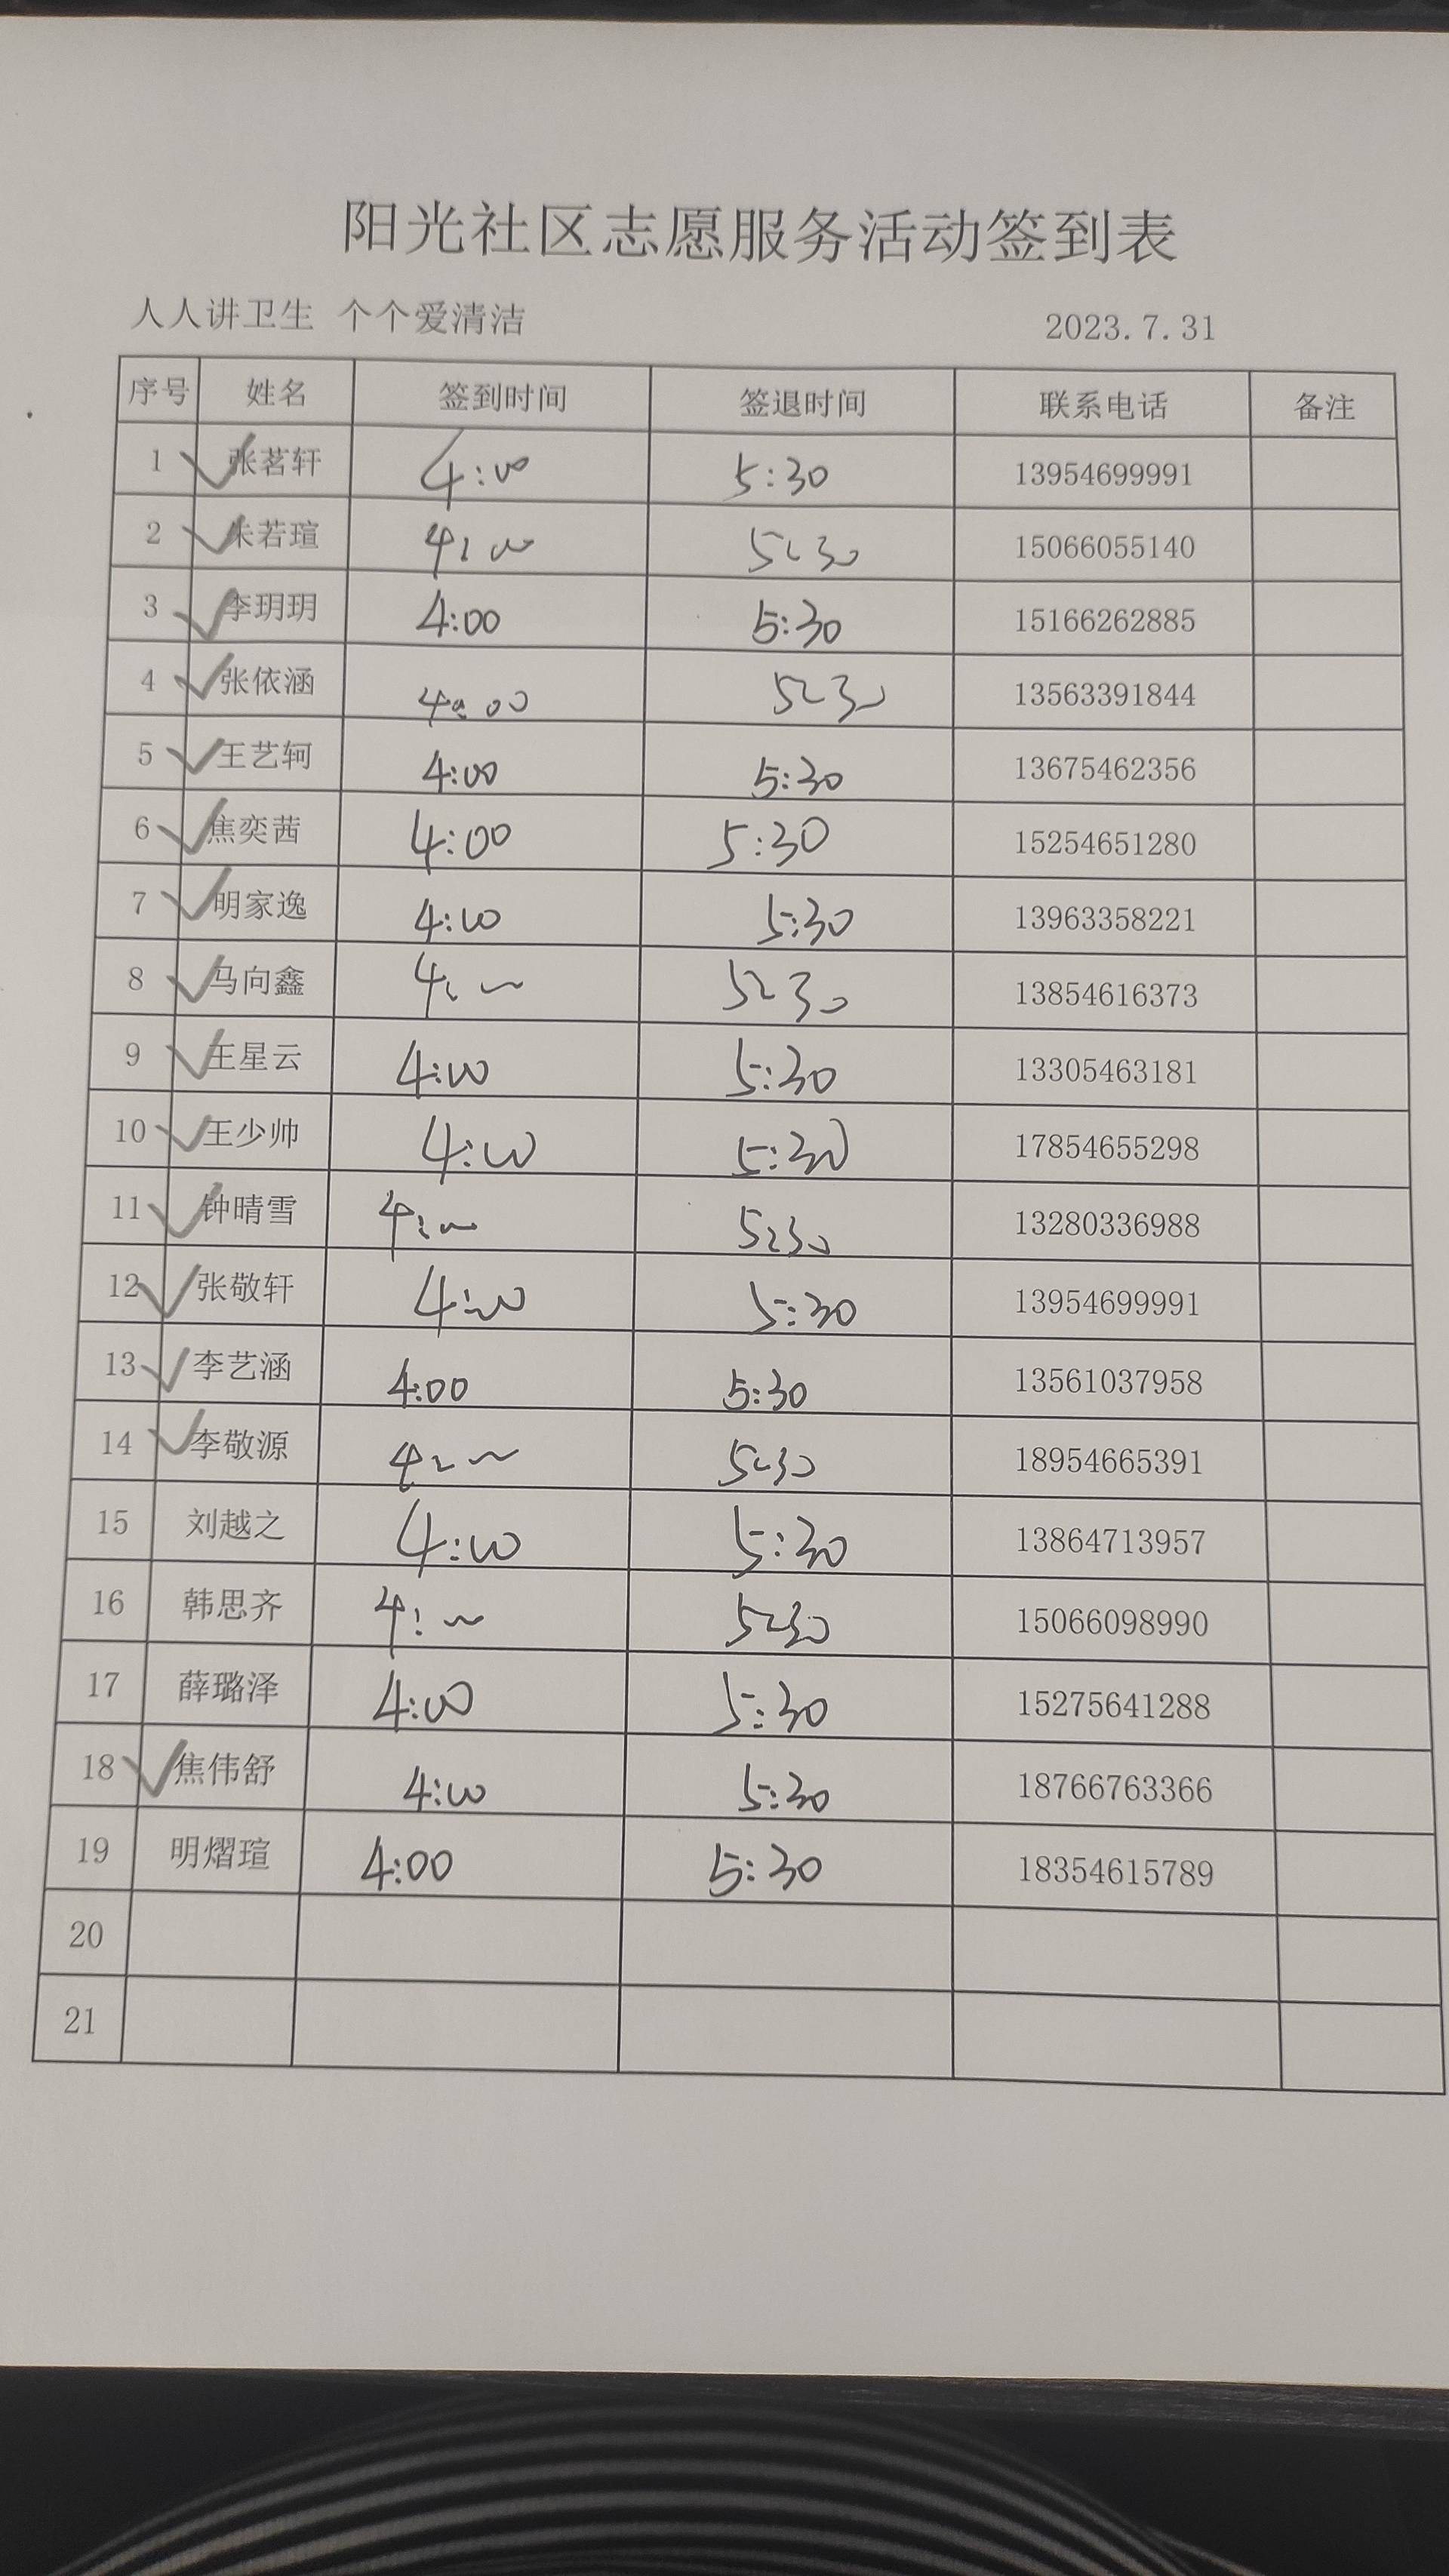 阳光社区志愿服务活动签到表
人人讲卫生 个个爱清洁 2023.7.31
序号 姓名 签到时间 签退时间 联系电话 备注
1 张茗轩 4:00 5:30 13954699991
2 朱若瑄 4:00 5:30 15066055140
3 李玥玥 4:00 5:30 15166262885
4 张依涵 4:00 5:30 13563391844
5 王艺轲 4:00 5:30 13675462356
6 焦奕茜 4:00 5:30 15254651280
7 明家逸 4:00 5:30 13963358221
8 马向鑫 4:00 5:30 13854616373
9 王星云 4:00 5:30 13305463181
10 王少帅 4:00 5:30 17854655298
11 钟晴雪 4:00 5:30 13280336988
12 张敬轩 4:00 5:30 13954699991
13 李艺涵 4:00 5:30 13561037958
14 李敬源 4:00 5:30 18954665391
15 刘越之 4:00 5:30 13864713957
16 韩思齐 4:00 5:30 15066098990
17 薛璐泽 4:00 5:30 15275641288
18 焦伟舒 4:00 5:30 18766763366
19 明熠瑄 4:00 5:30 18354615789
20
21